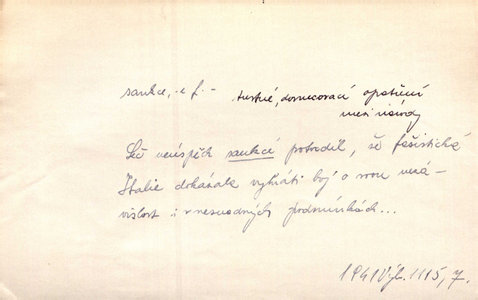 sankce, -e f. - trestné, donucovací opatření
mezi národy
Leč neúspěch sankcí potvrdil, že fašistická
Italie dokázala vyhráti boj o svou nezá-
vislost i v nesnadných podmínkách...
1941 Výb. 1115, 7.